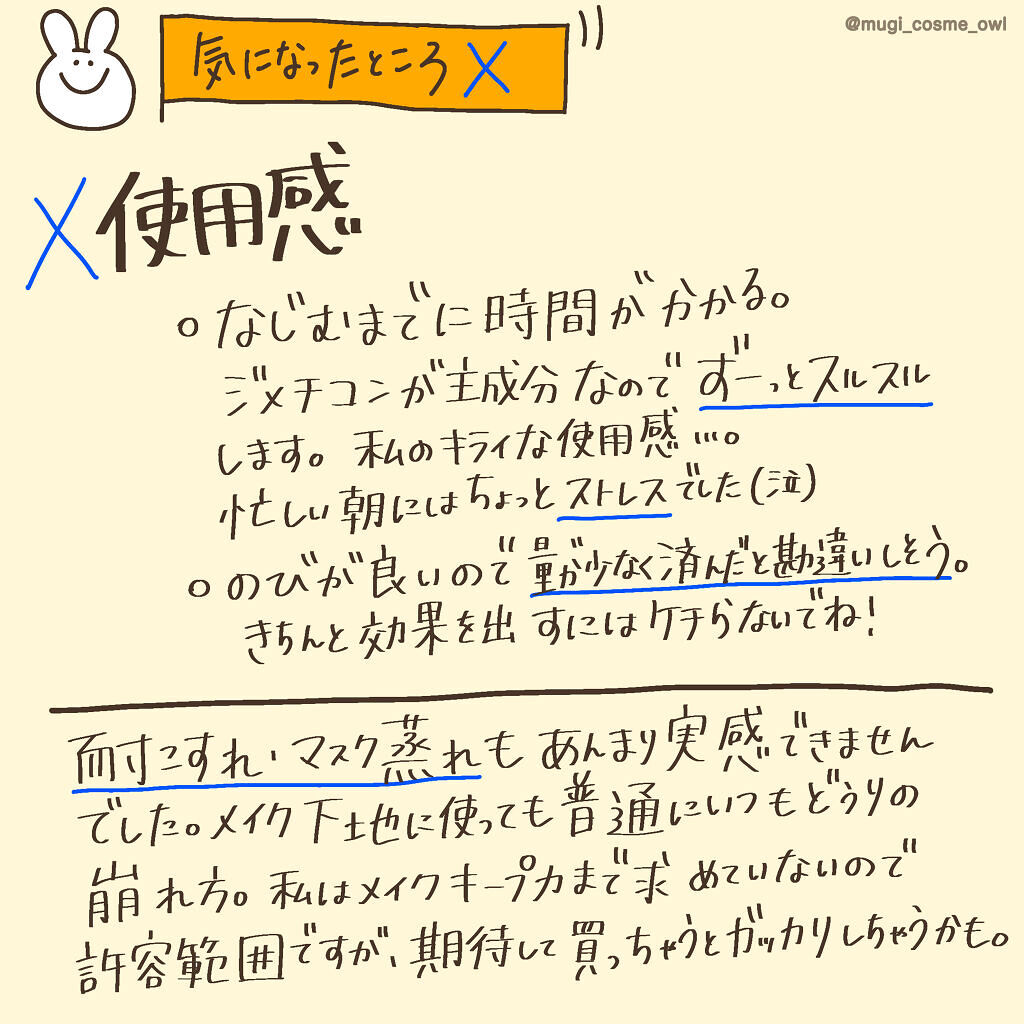 @mugi_cosme_owl
気になったところ X
X 使用感
○ なじむまでに時間がかかる。
ジメチコンが主成分なのでずーっとスルスル
します。私のキライな使用感…。
忙しい朝にはちょっとストレスでした(泣)
○ のびが良いので量が少なく済んだと勘違いしそう。
きちんと効果を出すにはケチらないでね!
耐こすれ・マスク蒸れもあんまり実感できません
でした。メイク下地に使っても普通にいつもどうりの
崩れ方。私はメイクキープ力まで求めていないので
許容範囲ですが、期待して買っちゃうとガッカリしちゃうかも。